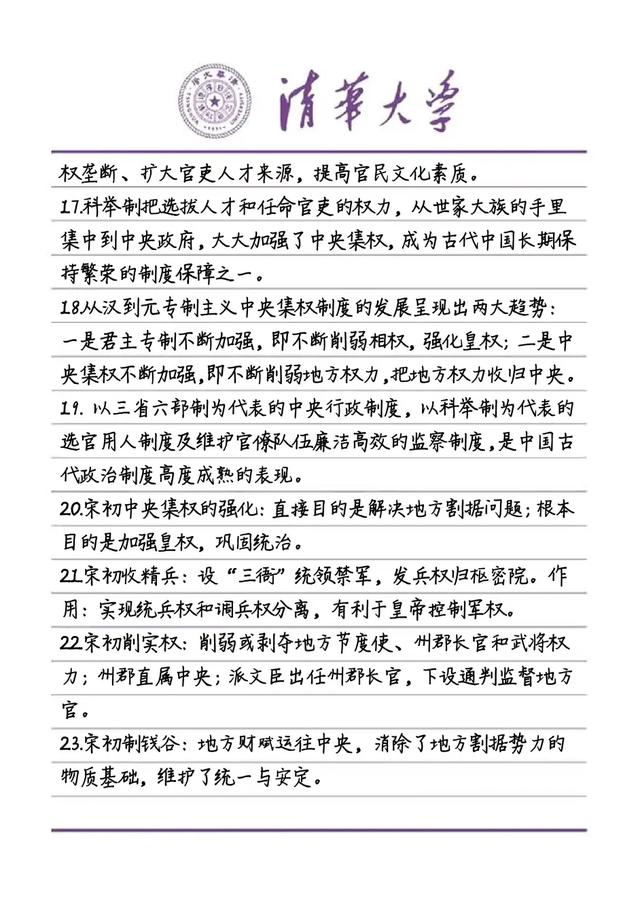 清华大学
权垄断、扩大官吏人才来源，提高官民文化素质。
17.科举制把选拔人才和任命官吏的权力，从世家大族的手里
集中到中央政府，大大加强了中央集权，成为古代中国长期保
持繁荣的制度保障之一。
18.从汉到元专制主义中央集权制度的发展呈现出两大趋势：
一是君主专制不断加强，即不断削弱相权，强化皇权；二是中
央集权不断加强，即不断削弱地方权力，把地方权力收归中央。
19. 以三省六部制为代表的中央行政制度，以科举制为代表的
选官用人制度及维护官僚队伍廉洁高效的监察制度，是中国古
代政治制度高度成熟的表现。
20.宋初中央集权的强化：直接目的是解决地方割据问题；根本
目的是加强皇权，巩固统治。
21.宋初收精兵：设“三衙”统领禁军，发兵权归枢密院。作
用：实现统兵权和调兵权分离，有利于皇帝控制军权。
22.宋初削实权：削弱或剥夺地方节度使、州郡长官和武将权
力；州郡直属中央；派文臣出任州郡长官，下设通判监督地方
官。
23.宋初制钱谷：地方财赋运往中央，消除了地方割据势力的
物质基础，维护了统一与安定。